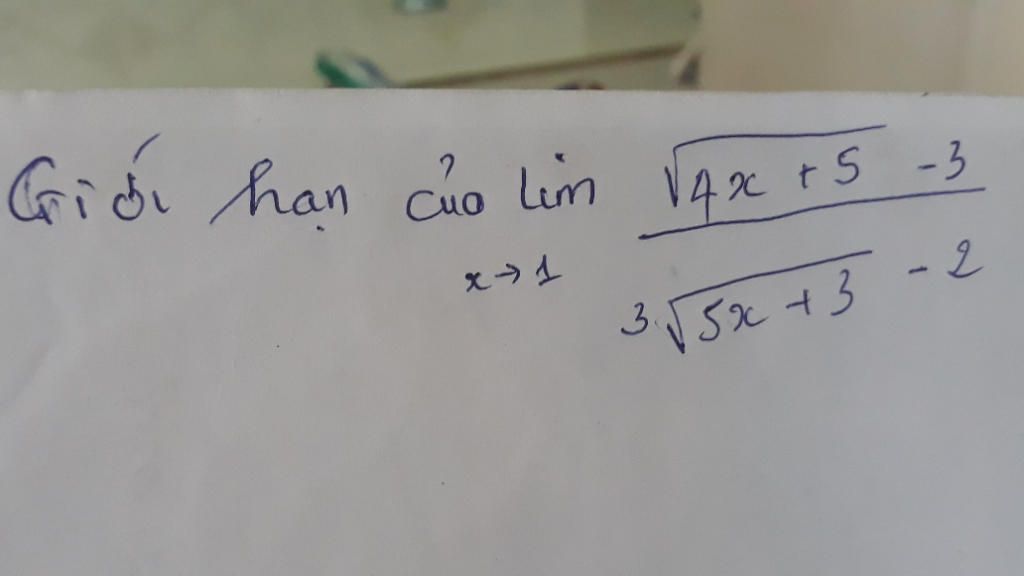 Giới hạn của lim √4x + 5 - 3
x→1 3√5x + 3 - 2